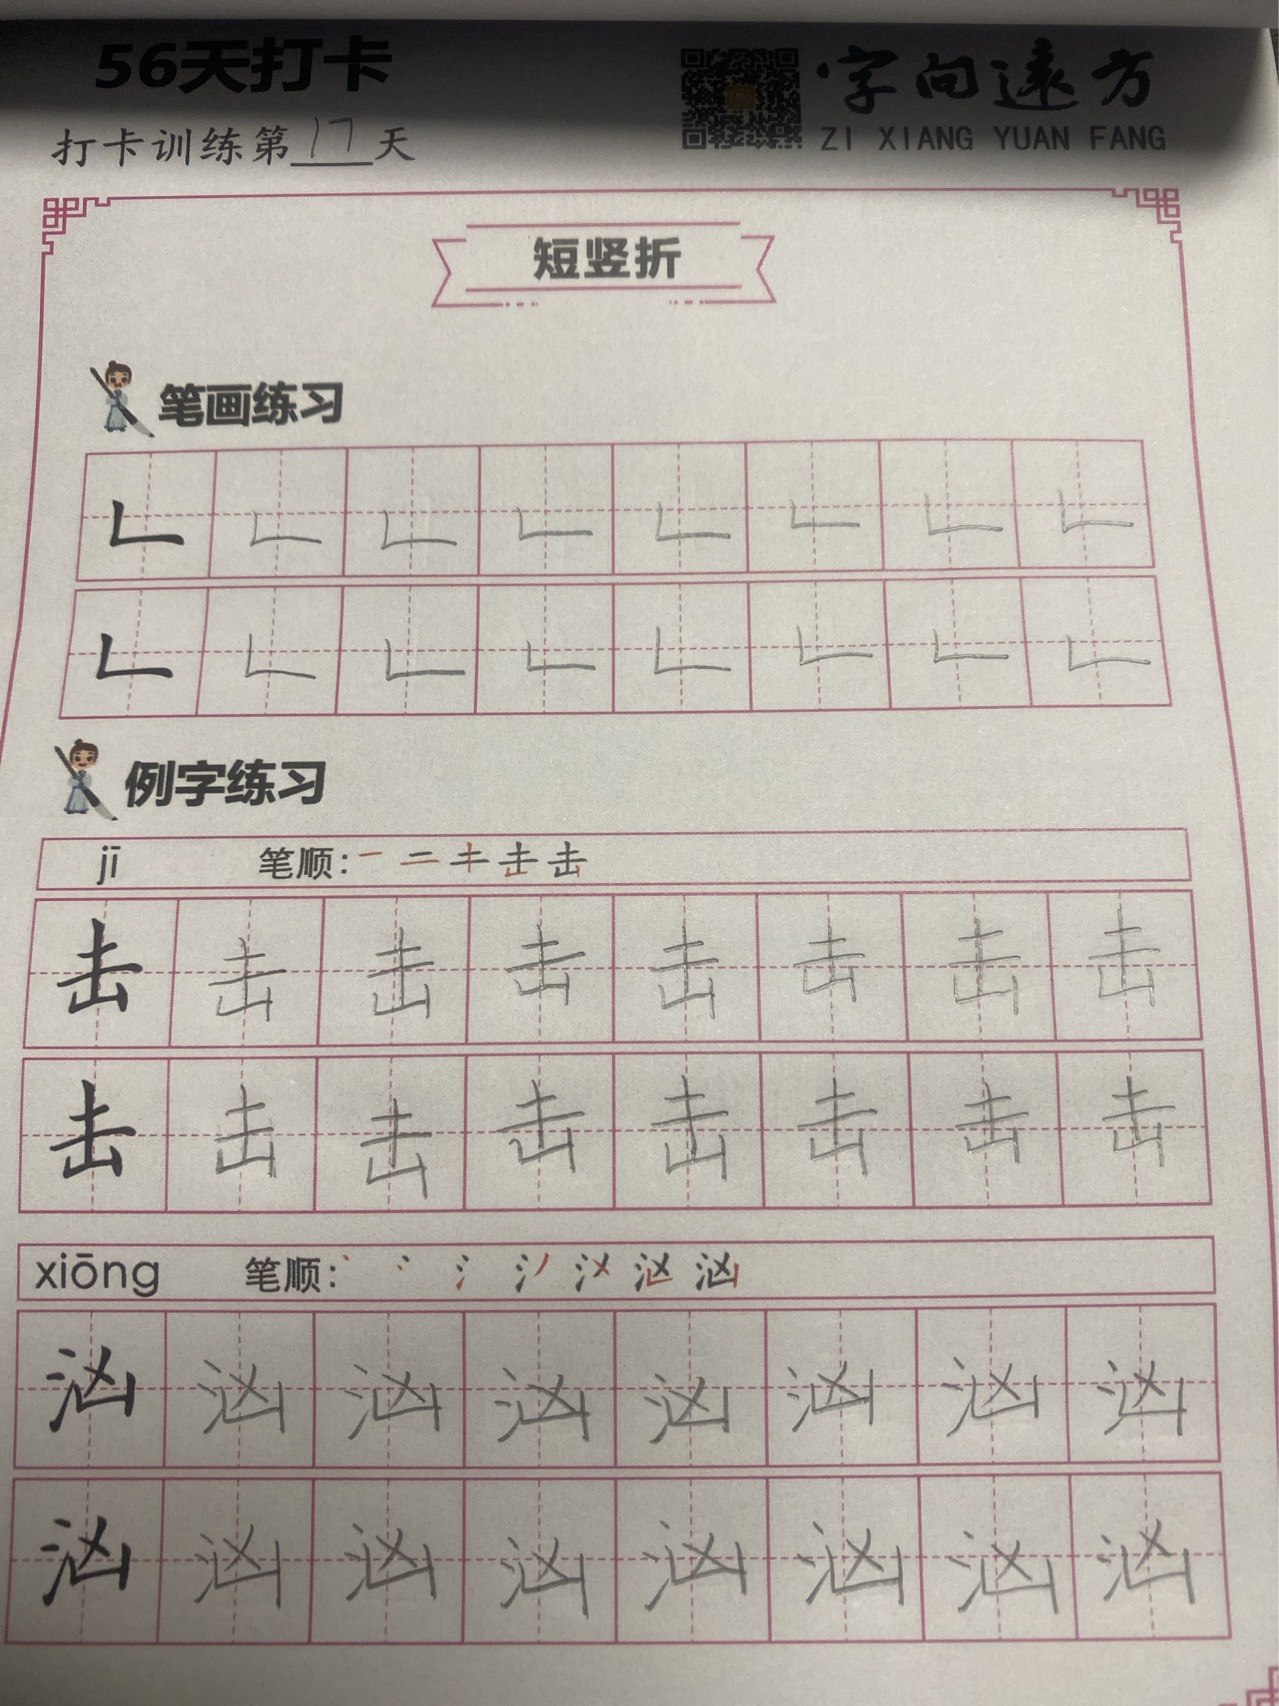 56天打卡
字向远方
ZI XIANG YUAN FANG
打卡训练第17天
短竖折
笔画练习
𠃊 𠃊 𠃊 𠃊 𠃊 𠃊 𠃊 𠃊
𠃊 𠃊 𠃊 𠃊 𠃊 𠃊 𠃊 𠃊
例字练习
jī 笔顺:
击 击 击 击 击 击 击 击
击 击 击 击 击 击 击 击
xiōng 笔顺:
汹 汹 汹 汹 汹 汹 汹 汹
汹 汹 汹 汹 汹 汹 汹 汹